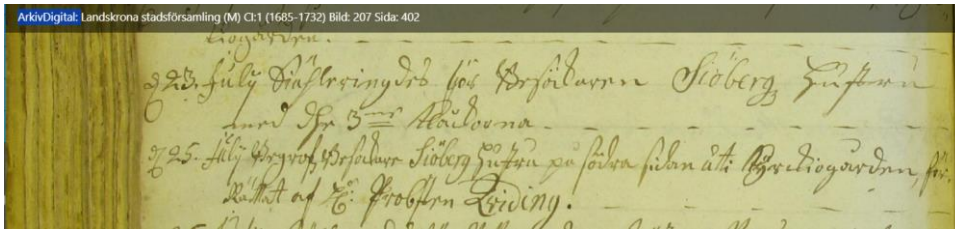 ArkivDigital: Landskrona stadsförsamling (M) CI:1 (1685-1732) Bild: 207 Sida: 402
kiogården.
d 23. July Siählringdes för Besökaren Siöberg Hustru
med dhe 3ne Klåckorna.
d 25. July Begrofs Besökare Siöberg Hustru på södra sidan uti Kyrckiogården, för-
Rättat af H: Probsten Qviding.